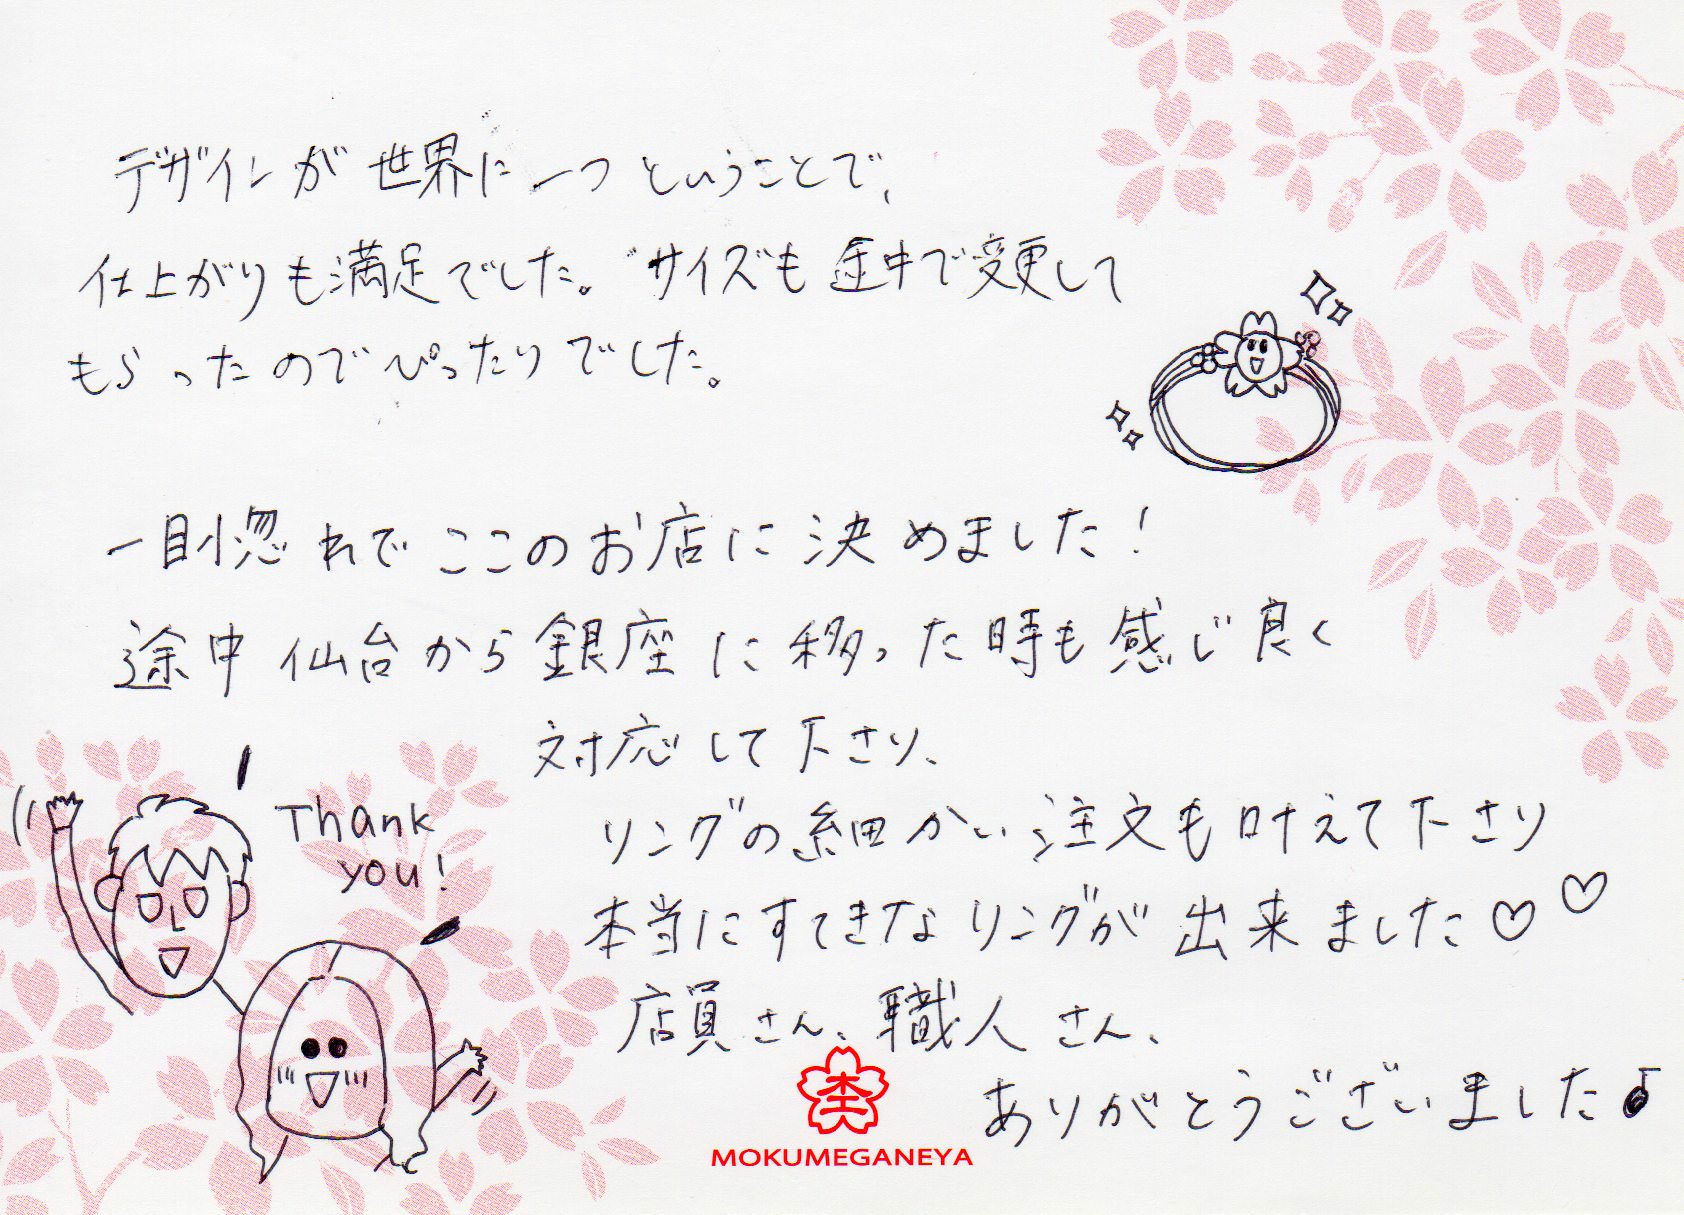 デザインが世界に一つということで、
仕上がりも満足でした。サイズも途中で変更して
もらったのでぴったりでした。
一目惚れでここのお店に決めました！
途中仙台から銀座に移った時も感じ良く
対応して下さり、
Thank
you!
リングの細かい注文も叶えて下さり
本当にすてきなリングが出来ました♡♡
店員さん、職人さん、
ありがとうございました♪
MOKUMEGANEYA